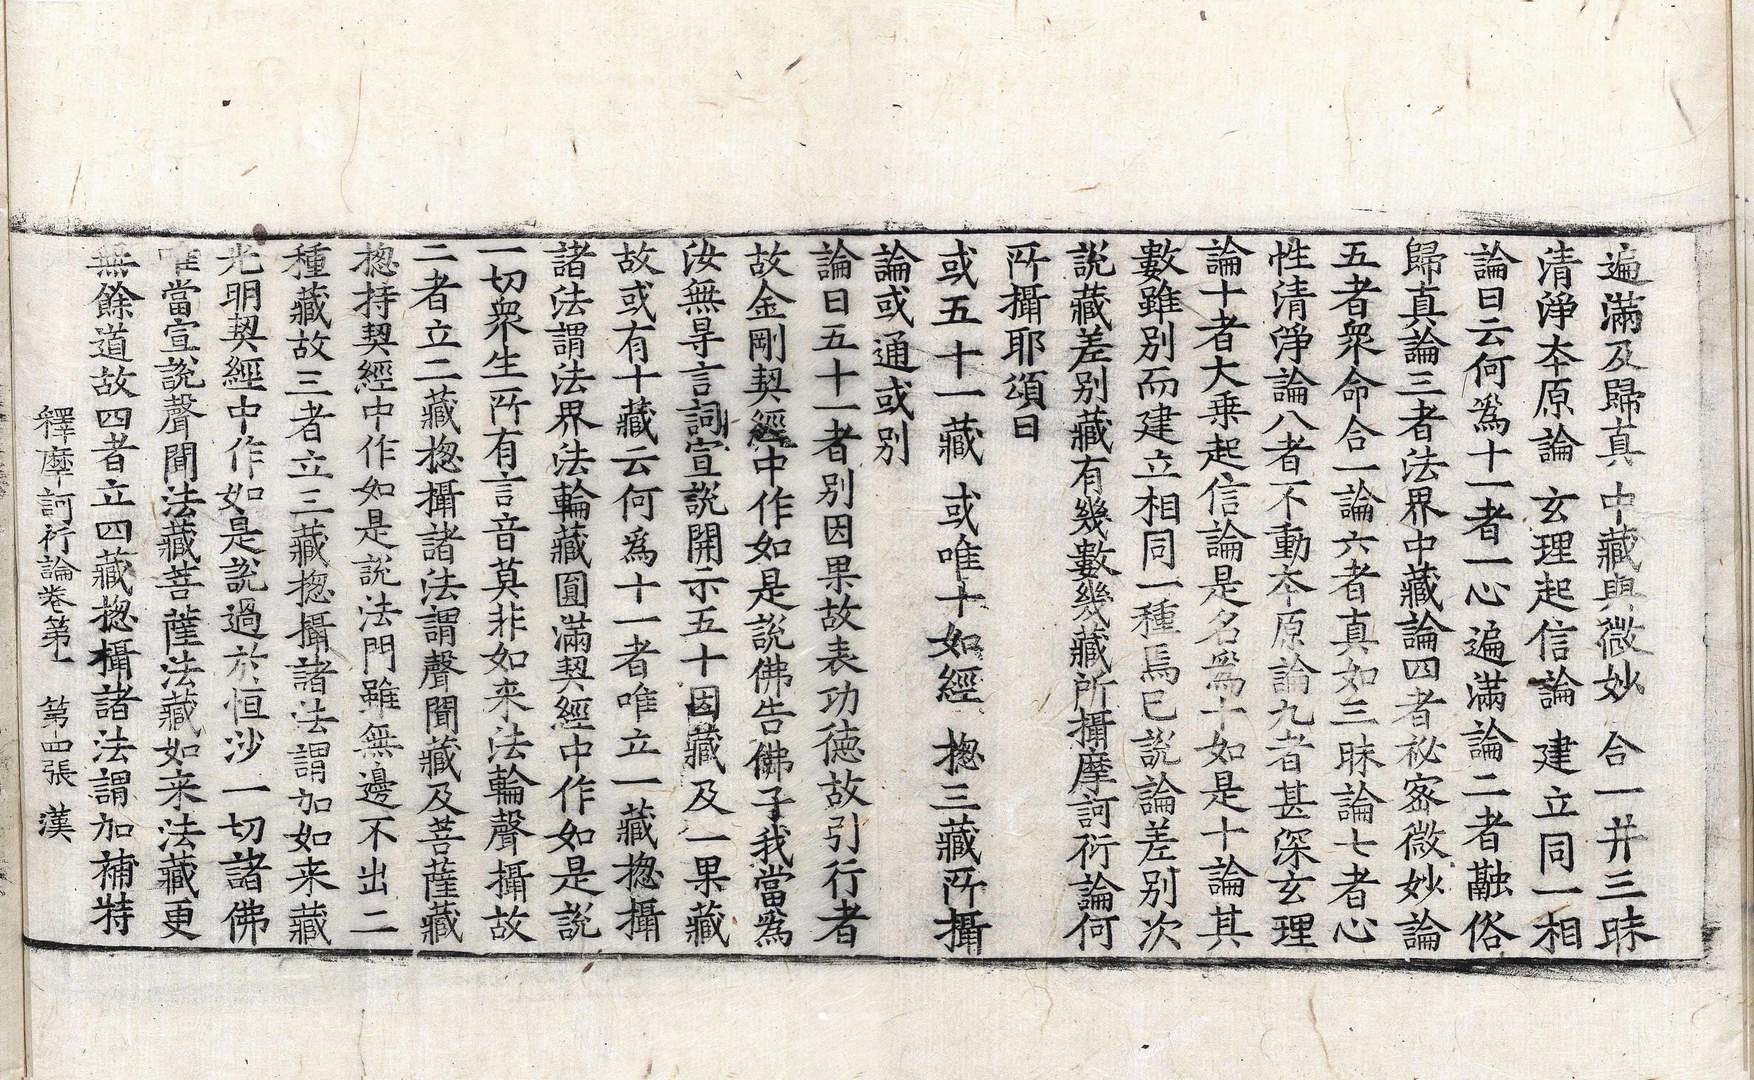 遍滿及歸真　中藏與微妙　合一并三昧
清淨夲原論　玄理起信論　建立同一相
論曰云何為十一者一心遍滿論二者融俗
歸真論三者法界中藏論四者祕密微妙論
五者衆命合一論六者真如三昧論七者心
性清淨論八者不動夲原論九者甚深玄理
論十者大乗起信論是名為十如是十論其
數雖別而建立相同一種焉已說論差別次
說藏差別藏有幾數幾藏所攝摩訶衍論何
所攝耶頌曰
或五十一藏　或唯十如經　揔三藏所攝
論或通或別
論曰五十一者別因果故表功德故引行者
故金剛契經中作如是說佛告佛子我當為
汝無㝵言詞宣說開示五十因藏及一果藏
故或有十藏云何為十一者唯立一藏揔攝
諸法謂法界法輪藏圓滿契經中作如是說
一切衆生所有言音莫非如来法輪聲攝故
二者立二藏揔攝諸法謂聲聞藏及菩薩藏
揔持契經中作如是說法門雖無邊不出二
種藏故三者立三藏揔攝諸法謂加如来藏
光明契經中作如是說過於恒沙一切諸佛
唯當宣說聲聞法藏菩薩法藏如来法藏更
無餘道故四者立四藏揔攝諸法謂加補特
釋摩訶衍論卷第一　第四張　漢